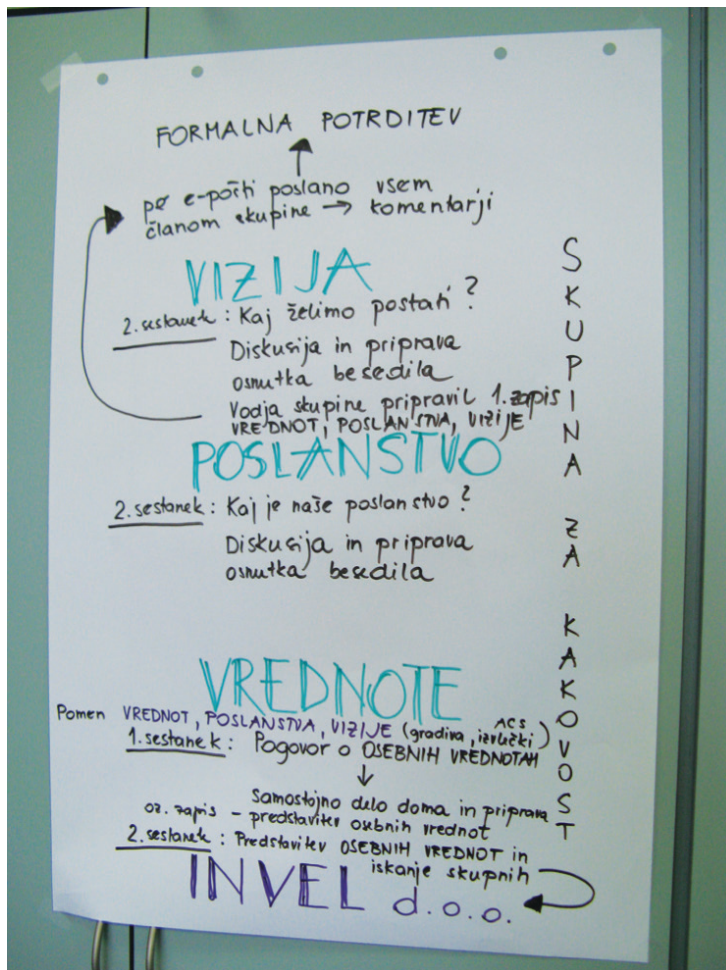 FORMALNA POTRDITEV
po e-pošti poslano vsem
članom skupine → komentarji
VIZIJA
2. sestanek : Kaj želimo postati ?
Diskusija in priprava
osnutka besedila
Vodja skupine pripravil 1. zapis
VREDNOT, POSLANSTVA, VIZIJE
POSLANSTVO
2. sestanek : Kaj je naše poslanstvo ?
Diskusija in priprava
osnutka besedila
VREDNOTE
Pomen VREDNOT, POSLANSTVA, VIZIJE (gradiva, izvlečki ACS)
1. sestanek : Pogovor o OSEBNIH VREDNOTAH
Samostojno delo doma in priprava
oz. zapis – predstavitev osebnih vrednot
2. sestanek : Predstavitev OSEBNIH VREDNOT in
iskanje skupnih
INVEL d.o.o.
SKUPINA ZA KAKOVOST